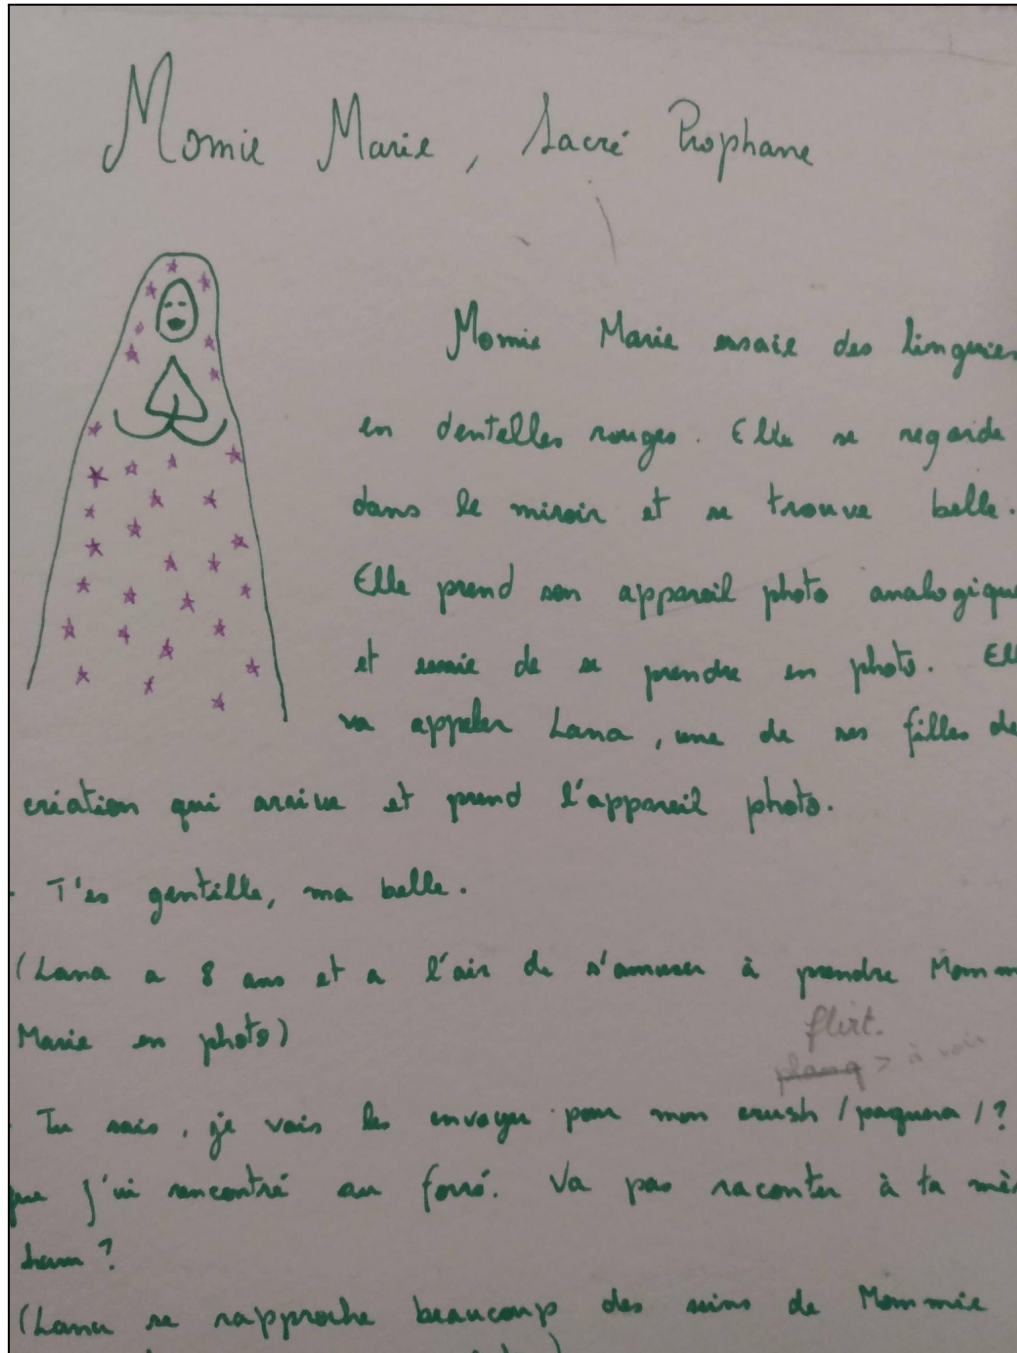 Momie Marie, Sacré Prophane
Momie Marie essaie des lingeries
en dentelles rouges. Elle se regarde
dans le miroir et se trouve belle.
Elle prend son appareil photo analogique
et essaie de se prendre en photo. Ell
va appeler Lana, une de ses filles de
création qui arrive et prend l'appareil photo.
- T'es gentille, ma belle.
(Lana a 8 ans et a l'air de s'amuser à prendre Momm
Marie en photo)
flirt.
plang > à voir
- Tu sais, je vais les envoyer pour mon crush / paquera / ?
que j'ai rencontré au forró. Va pas raconter à ta mèr
hum ?
(Lana se rapproche beaucoup des seins de Mommie